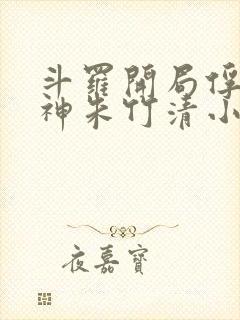 斗羅開局俘
神朱竹清小
夜嘉寶